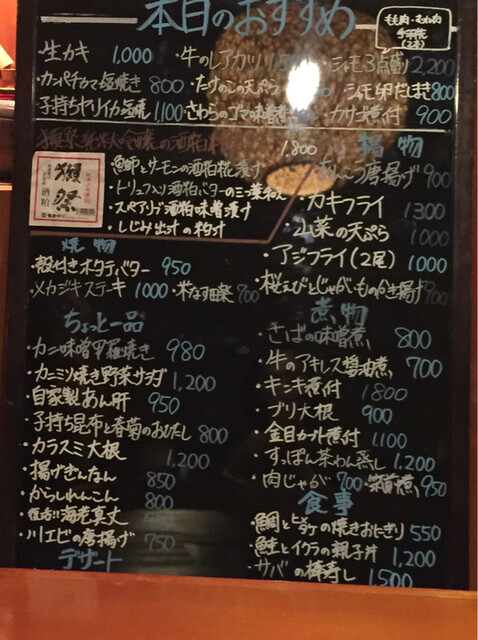 本日のおすすめ
もも肉・むね肉
手羽先
(2本)
・生カキ 1,000
・カンパチカマ塩焼き 800
・子持ちヤリイカ塩焼 1,100
・牛のレアカツ
・たけのこの天ぷら
・さわらのゴマ味噌煮
・シャモ3点盛り 2,200
・シャモ卵だしまき 800
・カサゴ煮付 900
獺祭 純米大吟醸の酒粕 1,800
獺祭
酒粕
・魚師とサーモンの酒粕糀漬け
・トリュフ入り酒粕バターの三つ葉和え
・スペアリブ酒粕味噌漬け
・しじみ出汁の粕汁
焼物
・殻付きホタテバター 950
・メカジキステーキ 1000 ・米なす田楽 700
ちょっと一品
・カニ味噌甲羅焼き 980
・カニミソ焼き野菜サラダ 1,200
・自家製あん肝 950
・子持ち昆布と春菊のおひたし 800
・カラスミ大根 1,200
・揚げぎんなん 850
・からしれんこん 800
・復活!!海老真丈
・川エビの唐揚げ 750
デザート
揚物
唐揚げ 900
・カキフライ 1300
・山菜の天ぷら 1000
・アジフライ(2尾) 1000
・桜えびとじゃがいものかき揚げ 900
煮物
・さばの味噌煮 800
・牛のアキレス醤油煮 700
・キンキ煮付 1800
・ブリ大根 900
・金目カブト煮付 1,100
・すっぽん茶わん蒸し 1,200
・肉じゃが 700 950
食事
・鯛と の焼きおにぎり 550
・鮭とイクラの親子丼 1,200
・サバの棒寿し 1500